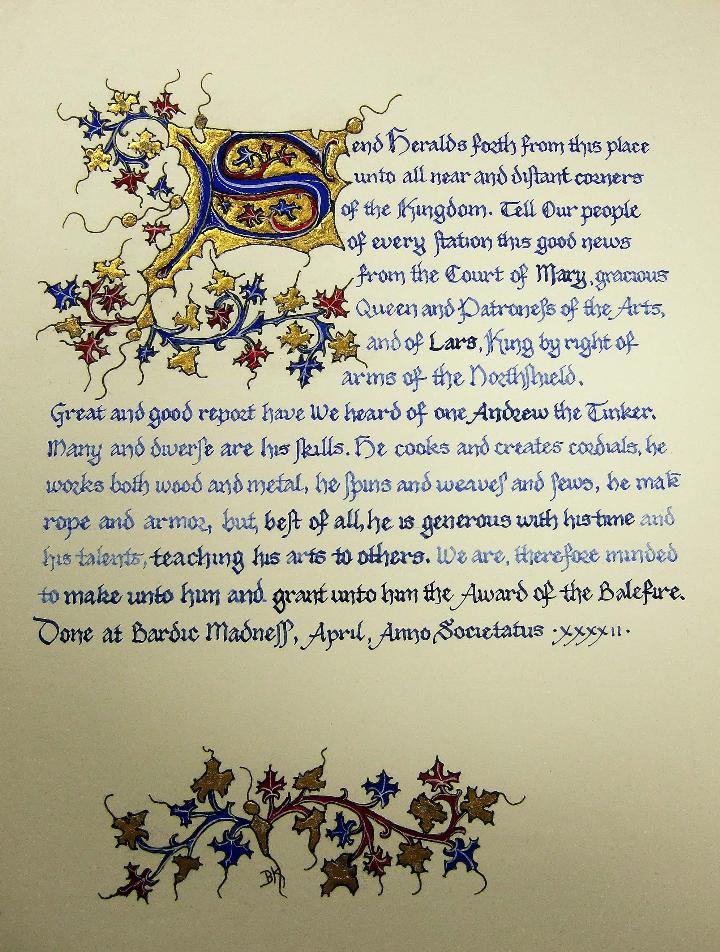 Send Heralds forth from this place
unto all near and distant corners
of the Kingdom. Tell Our people
of every station this good news
from the Court of Mary, gracious
Queen and Patroness of the Arts,
and of Lars, King by right of
arms of the Northshield.
Great and good report have We heard of one Andrew the Tinker.
Many and diverse are his skills. He cooks and creates cordials, he
works both wood and metal, he spins and weaves and sews, he mak
rope and armor, but, best of all, he is generous with his time and
his talents, teaching his arts to others. We are, therefore minded
to make unto him and grant unto him the Award of the Balefire.
Done at Bardic Madness, April, Anno Societatus ·xxxxii·
BK